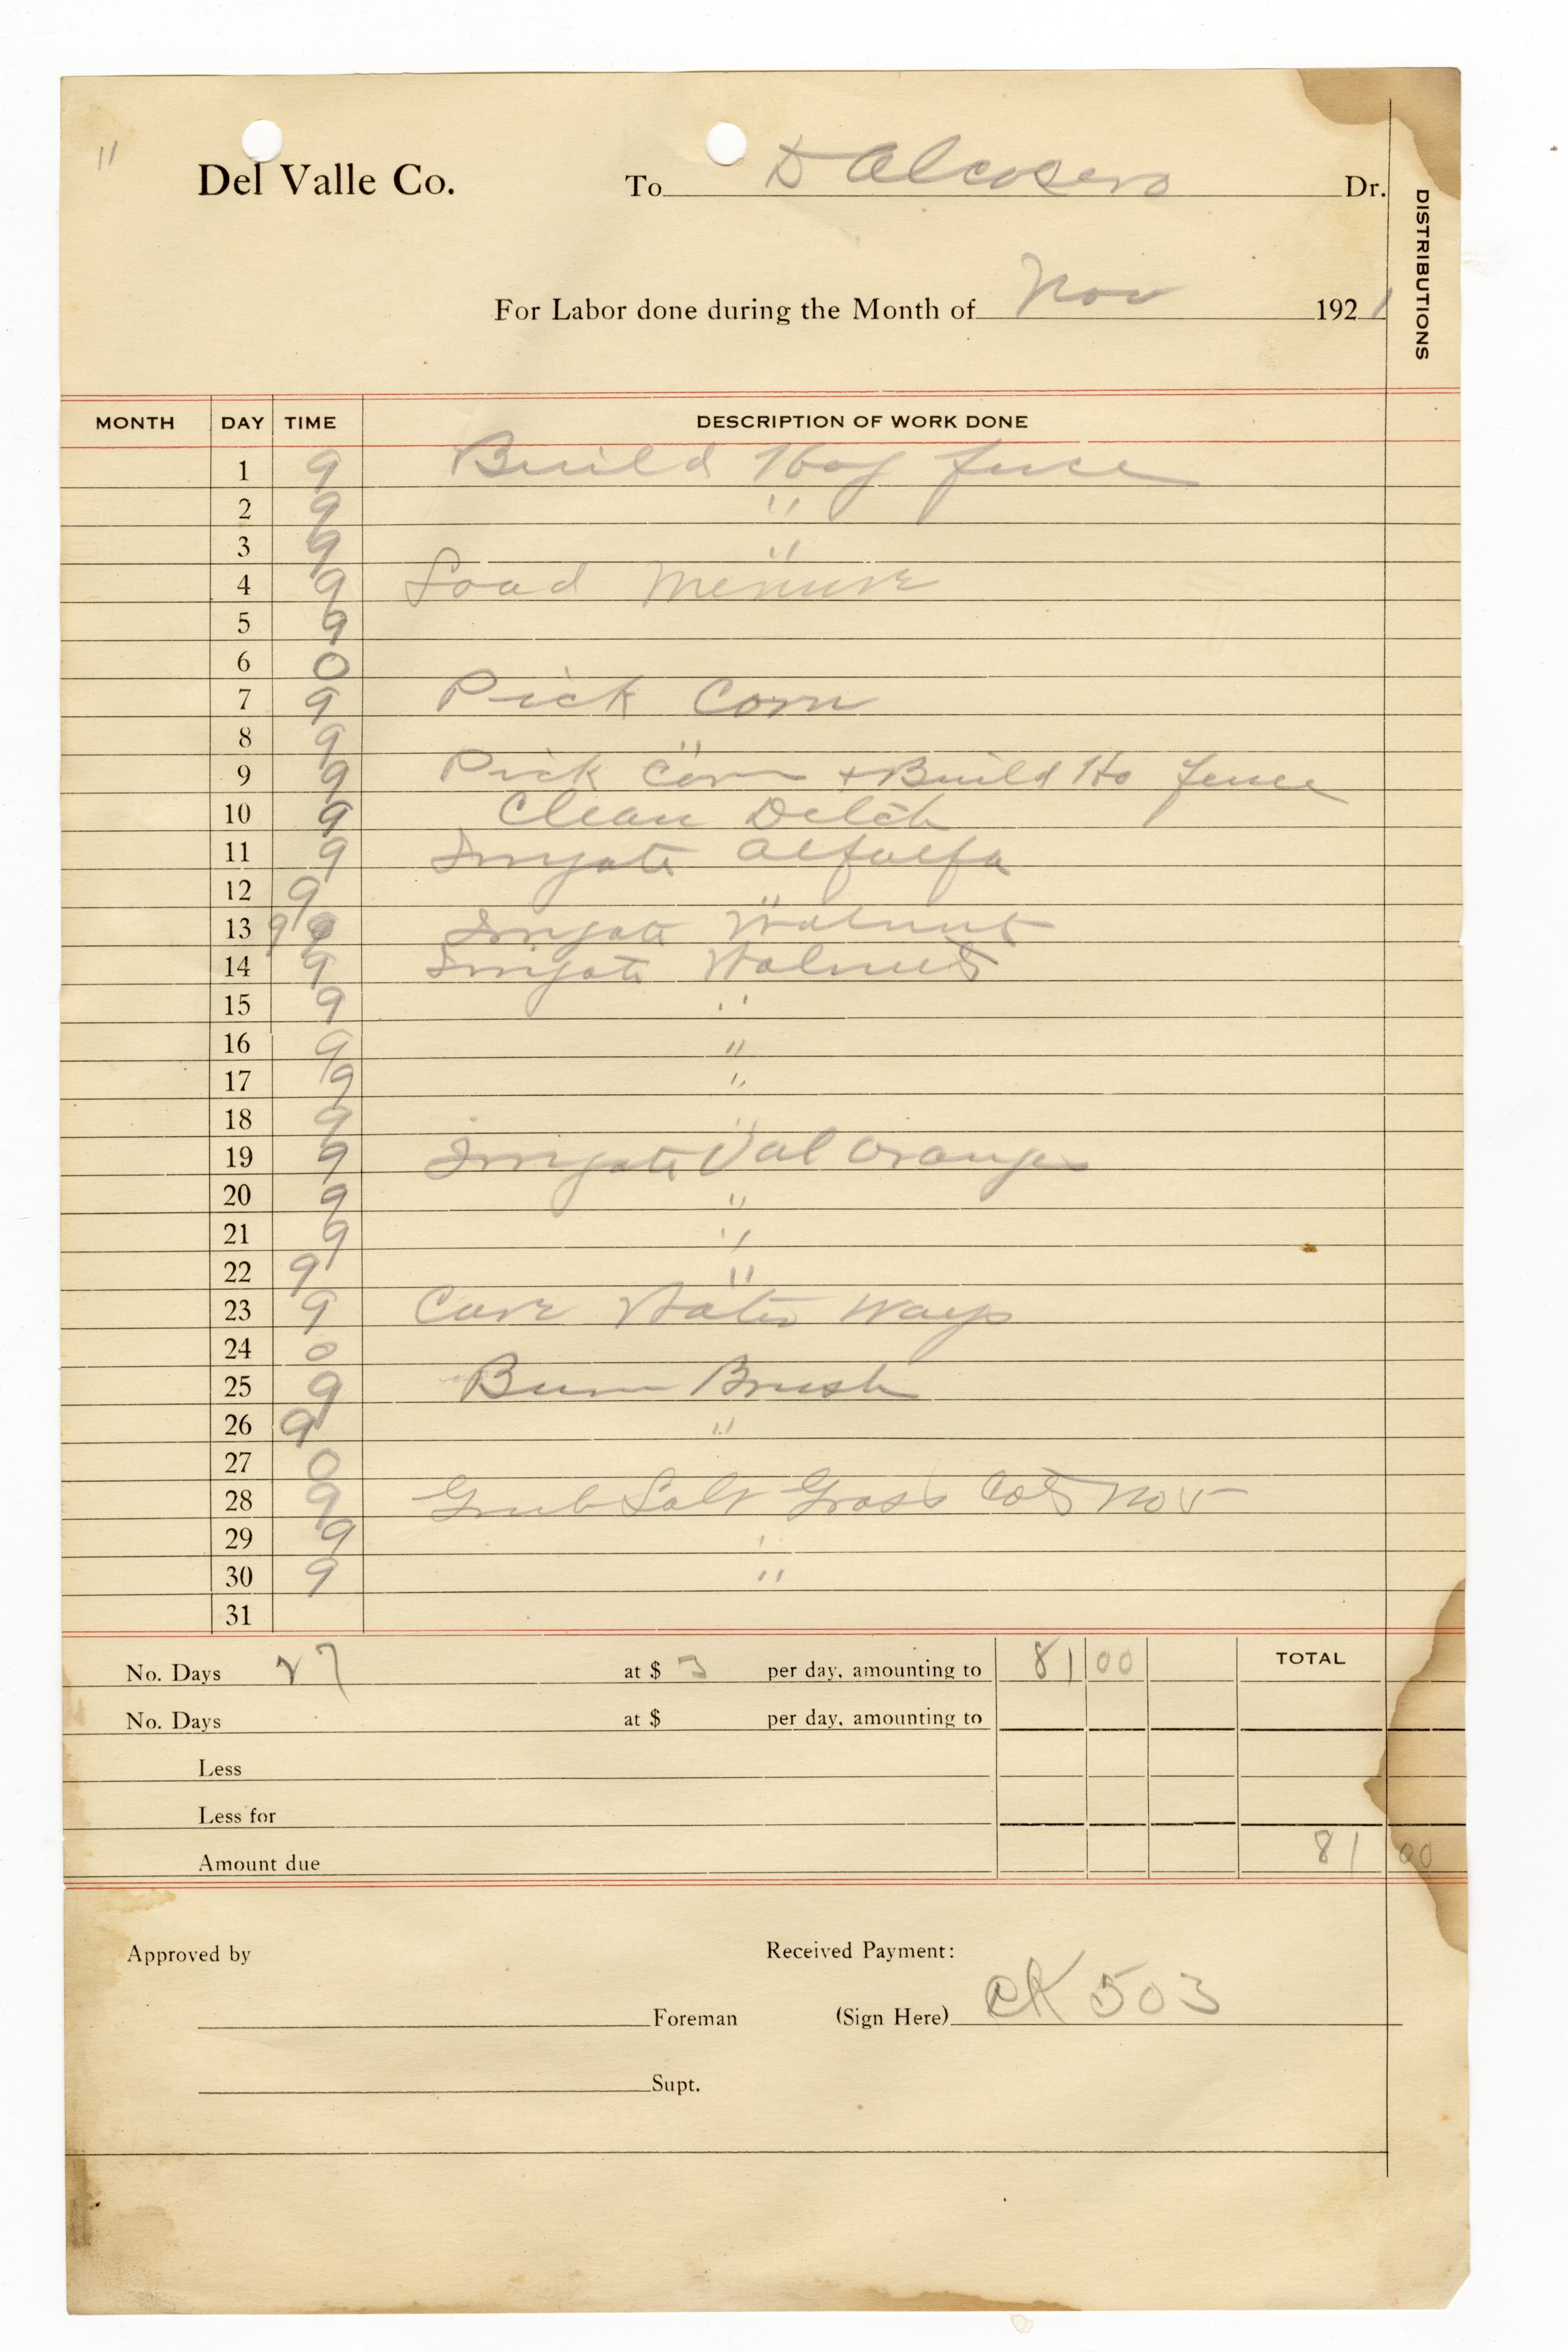 11
Del Valle Co. To D Alcosero Dr.
DISTRIBUTIONS
For Labor done during the Month of Nov 1921
MONTH DAY TIME DESCRIPTION OF WORK DONE
1 9 Build Hog fence
2 9 "
3 9 "
4 9 Load Menure
5 9 "
6 0
7 9 Pick Corn
8 9 "
9 9 Pick Corn + Build Ho fence
10 9 Clean Ditch
11 9 Irrigate alfalfa
12 9 "
13 9 9 Irrigate Walnuts
14 9 Irrigate Walnuts
15 9 "
16 9 "
17 9 "
18 9 "
19 9 Irrigate Val Oranges
20 9 "
21 9 "
22 9 "
23 9 Care Water Ways
24 0
25 9 Burn Brush
26 9 "
27 0
28 9 Grub Salt Grass Cots No 5
29 9 "
30 9 "
31
No. Days 27 at $ 3 per day, amounting to 81 00 TOTAL
No. Days at $ per day, amounting to
Less
Less for
Amount due 81 00
Approved by Received Payment:
Foreman (Sign Here) CK 503
Supt.